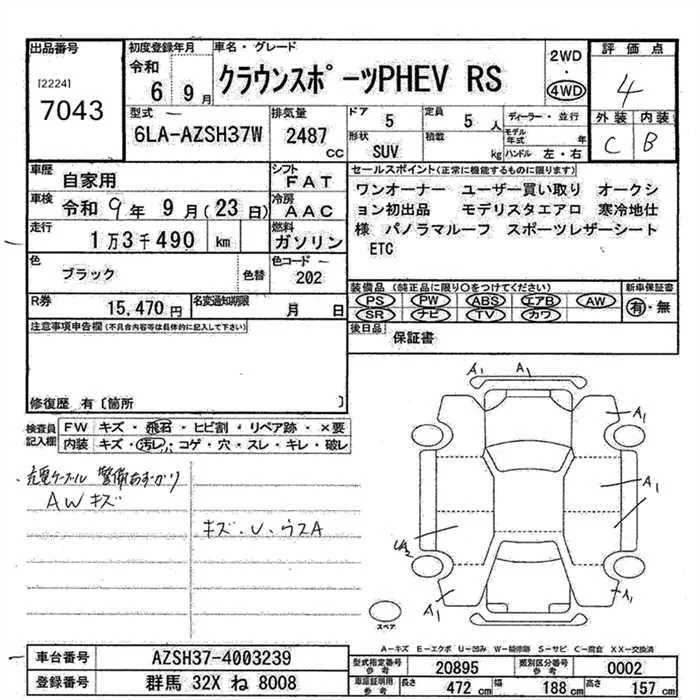 出品番号
[2224]
7043
初度登録年月
令和
6 9月
車名・グレード
クラウンスポーツPHEV RS
2WD
・
4WD
評価点
4
外装 内装
C B
型式
6LA-AZSH37W
排気量
2487
cc
ドア
5
定員
5 人
形状
SUV
積載
kg
ディーラー・並行
モデル年式 年
ハンドル 左・右
車歴
自家用
シフト
FAT
車検
令和 9年 9月(23日)
冷房
AAC
走行
1万3千490 km
燃料
ガソリン
色
ブラック
色替
色コード
202
R券
15,470円
名変通知期限
月 日
セールスポイント(正常に機能するものに限ります)
ワンオーナー ユーザー買い取り オークシ
ョン初出品 モデリスタエアロ 寒冷地仕
様 パノラマルーフ スポーツレザーシート
ETC
装備品(純正品に限り○をつけてください)
PS PW ABS エアB AW
SR ナビ TV カワ
新車保証書
有・無
後日品
保証書
注意事項申告欄(不具合内容等は具体的に記入して下さい)
修復歴 有〔箇所 〕
検査員記入欄
FW キズ・飛石・ヒビ割・リペア跡・×要
内装 キズ・汚レ・コゲ・穴・スレ・キレ・破レ
充電ケーブル 警備あずかり
AWキズ
キズ・U・ウスA
A1 A1
A1
A1
A1
A1
スペア
A-キズ E-エクボ U-凹み W-補修跡 S-サビ C-腐食 XX-交換済
車台番号
AZSH37-4003239
登録番号
群馬 32X ね 8008
型式指定番号
参考
20895
類別区分番号
参考
0002
車庫証明用
参考
長さ
472 cm
幅
188 cm
高さ
157 cm